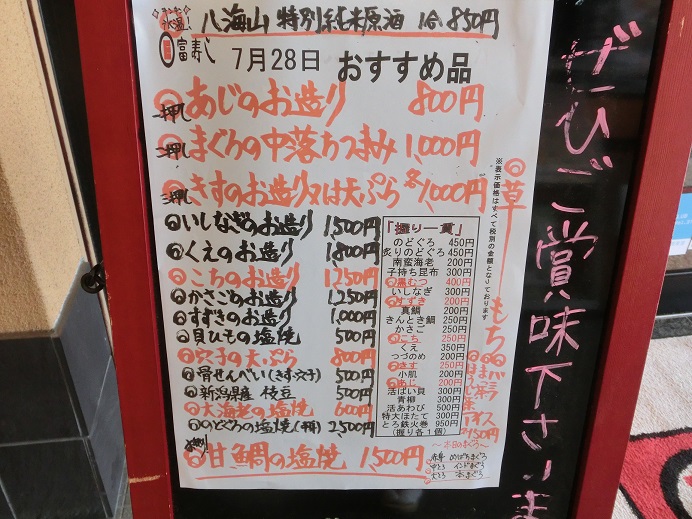 氷温!
八海山 特別純米原酒 1合850円
富寿し 7月28日 おすすめ品
一押し あじのお造り 800円
二押し まぐろの中落ちつまみ 1,000円
三押し きすのお造り又は天ぷら 各1,000円
いしなぎのお造り 1,500円
くえのお造り 1,800円
こちのお造り 1,250円
かさごのお造り 1,250円
すずきのお造り 1,000円
貝ひもの塩焼 500円
穴子の天ぷら 800円
骨せんべい(きす・穴子) 500円
新潟県産 枝豆 500円
大海老の塩焼 600円
のどぐろの塩焼(一冊) 2,500円
甘鯛の塩焼 1,500円
「握り一貫」
のどぐろ 450円
炙りのどぐろ 450円
南蛮海老 200円
子持ち昆布 300円
黒むつ 400円
いしなぎ 300円
すずき 200円
真鯛 200円
きんとき鯛 250円
かさご 250円
こち 250円
くえ 350円
つづのめ 200円
きす 250円
小肌 200円
あじ 200円
活ばい貝 300円
青柳 200円
活あわび 500円
特大ほたて 300円
とろ鉄火巻 950円
(握り各1個)
※表示価格はすべて税別の金額となっております
草もち
ほうじ茶アイス
各150円
～本日のまぐろ～
赤身 めばちまぐろ
中とろ インドまぐろ
大とろ 本まぐろ
ぜひご賞味下さいま